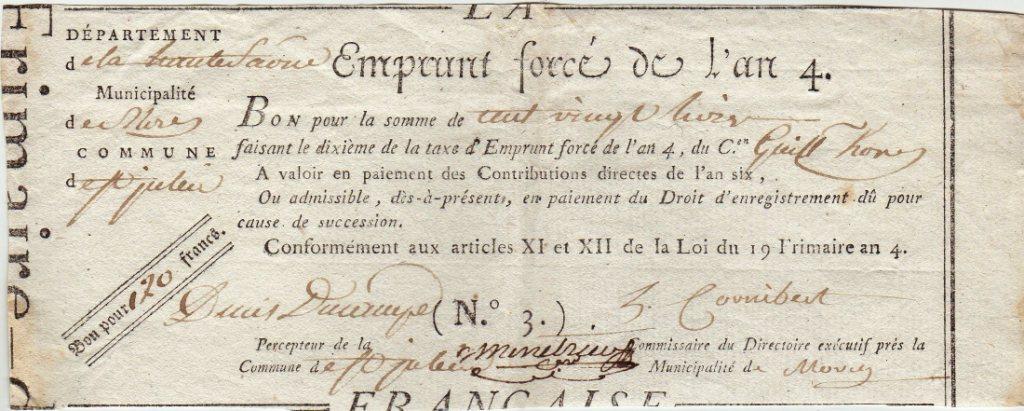 LA
DÉPARTEMENT
de la haute Saône
Municipalité
de
COMMUNE
de St julien
Bon pour 120 francs.
Emprunt forcé de l'an 4.
BON pour la somme de cent vingt livres
faisant le dixième de la taxe d'Emprunt forcé de l'an 4, du C.en Guill
A valoir en paiement des Contributions directes de l'an six,
Ou admissible, dès-à-présent, en paiement du Droit d'enregistrement dû pour
cause de succession.
Conformément aux articles XI et XII de la Loi du 19 Frimaire an 4.
Denis
(N.° 3.)
J. Cornibert
Percepteur de la
Commune de St julien
Commissaire du Directoire exécutif près la
Municipalité de
FRANÇAISE